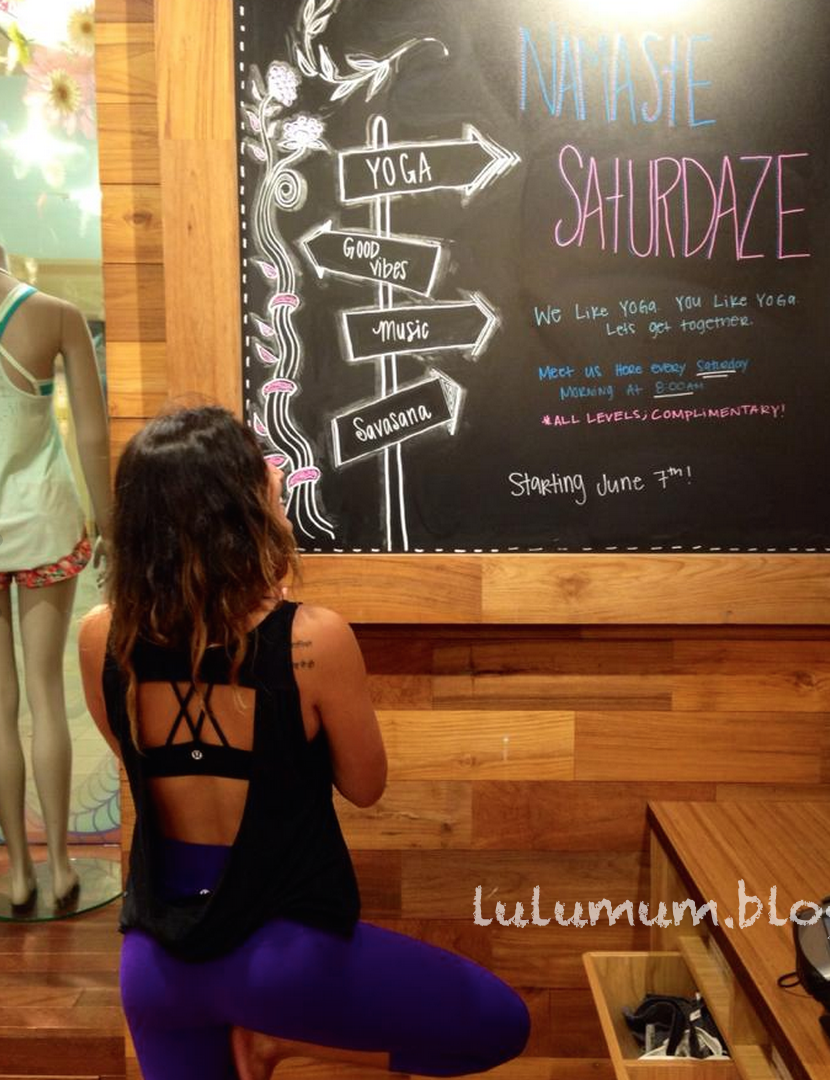 NAMASTE
SATURDAZE
YOGA
GOOD
vibes
Music
Savasana
We Like YOGA. You Like YOGA.
Lets get together.
Meet us Here every Saturday
Morning At 8:00AM
*ALL LEVELS; COMPLIMENTARY!
Starting June 7th!
lulumum.blo